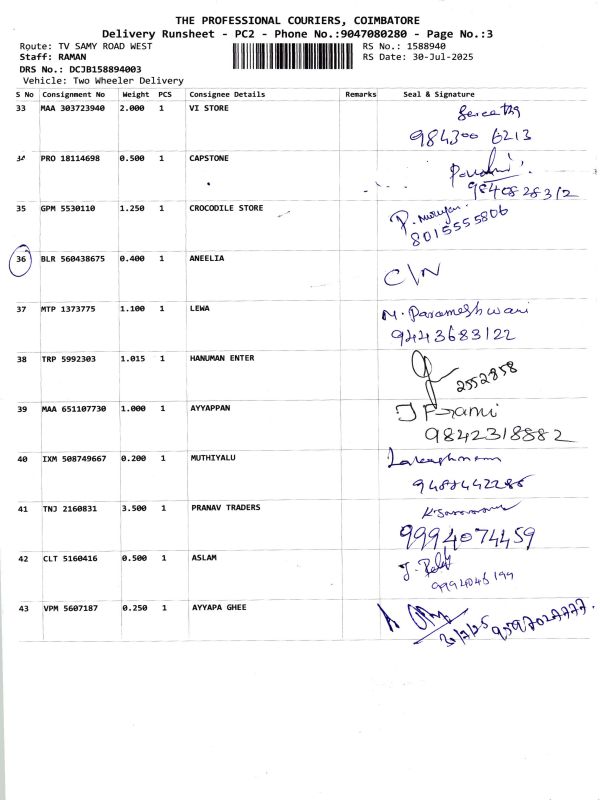 THE PROFESSIONAL COURIERS, COIMBATORE
Delivery Runsheet - PC2 - Phone No.:9047080280 - Page No.:3
Route: TV SAMY ROAD WEST RS No.: 1588940
Staff: RAMAN RS Date: 30-Jul-2025
DRS No.: DCJB158894003
Vehicle: Two Wheeler Delivery
S No Consignment No Weight PCS Consignee Details Remarks Seal & Signature
33 MAA 303723940 2.000 1 VI STORE
984300 6213
34 PRO 18114698 0.500 1 CAPSTONE
9840828312
35 GPM 5530110 1.250 1 CROCODILE STORE P. Murugan
8015555806
36 BLR 560438675 0.400 1 ANEELIA
C\N
37 MTP 1373775 1.100 1 LEWA M. Parameshwari
9443683122
38 TRP 5992303 1.015 1 HANUMAN ENTER
2552858
39 MAA 651107730 1.000 1 AYYAPPAN
9842318882
40 IXM 508749667 0.200 1 MUTHIYALU
41 TNJ 2160831 3.500 1 PRANAV TRADERS
9994074459
42 CLT 5160416 0.500 1 ASLAM
9994046199
43 VPM 5607187 0.250 1 AYYAPA GHEE
9597027777.